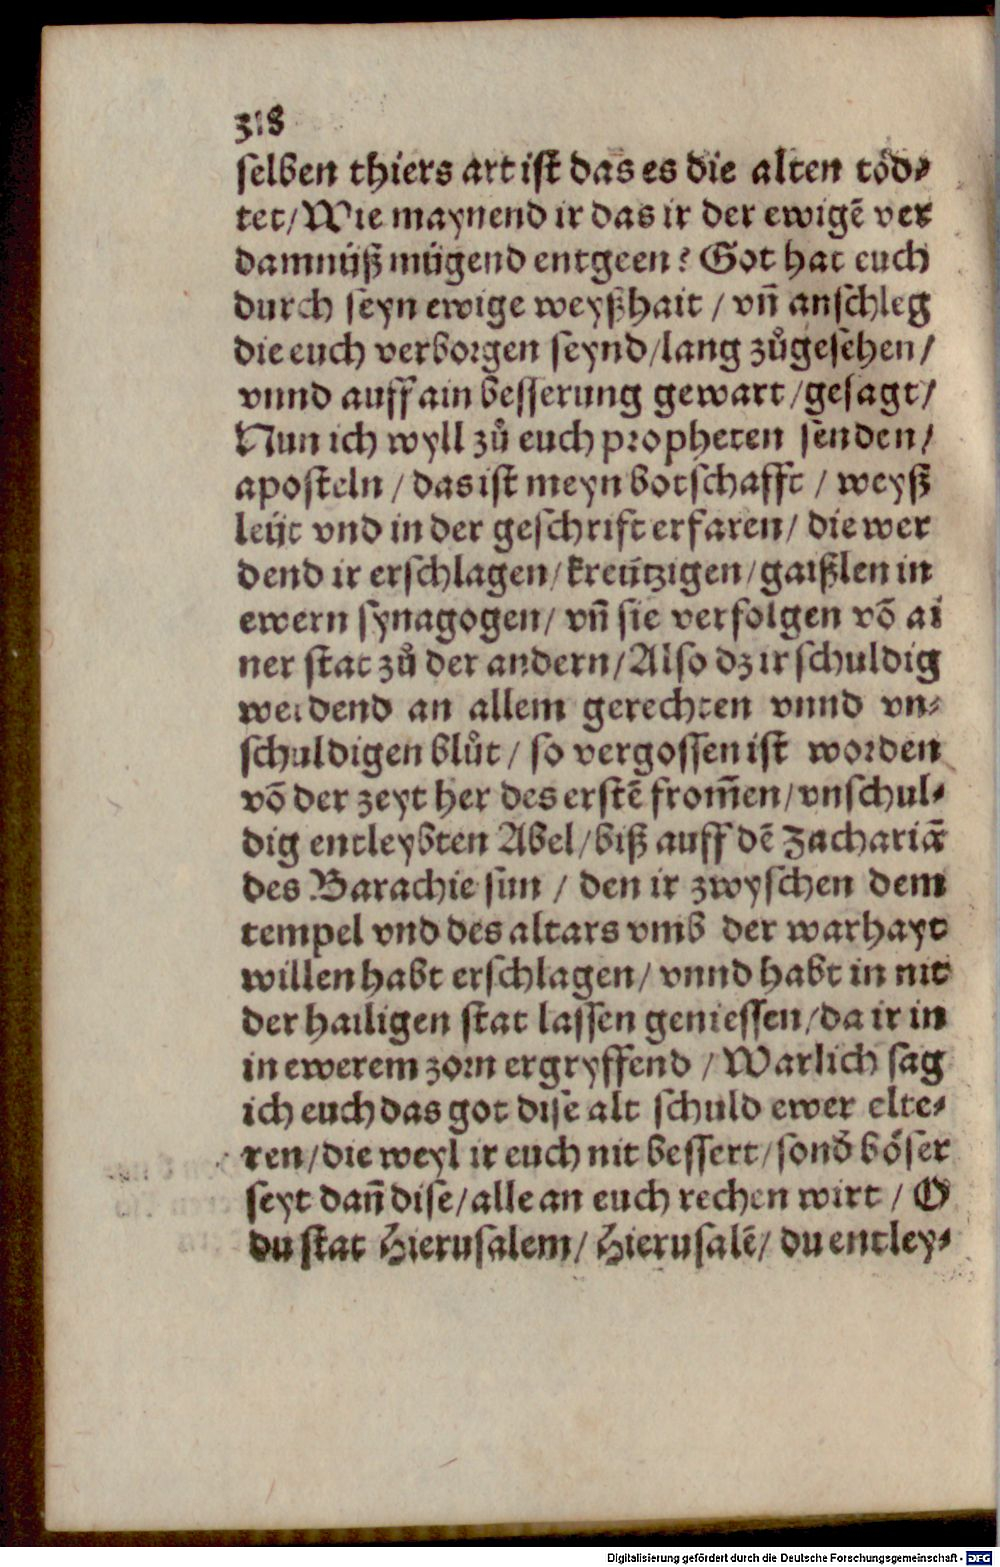 318
selben thiers art ist das es die alten töd⸗
tet/ Wie maynend ir das ir der ewigē ver
damnüß mügend entgeen? Got hat euch
durch seyn ewige weyßhait / vñ anschleg
die euch verborgen seynd/lang zůgesehen/
vnnd auff ain besserung gewart/gesagt/
Nun ich wyll zů euch propheten senden/
aposteln / das ist meyn botschafft / weyß
leüt vnd in der geschrift erfaren/ die wer
dend ir erschlagen/kreützigen/gaißlen in
ewern synagogen/ vñ sie verfolgen vō ai
ner stat zů der andern/Also dz ir schuldig
werdend an allem gerechten vnnd vn⸗
schuldigen blůt / so vergossen ist worden
vō der zeyt her des erstē from̄en/vnschul⸗
dig entleybten Abel/biß auff dē Zachariā
des Barachie sun / den ir zwyschen dem
tempel vnd des altars vmb der warhayt
willen habt erschlagen/ vnnd habt in nit
der hailigen stat lassen geniessen/da ir in
in ewerem zorn ergryffend / Warlich sag
ich euch das got dise alt schuld ewer elte⸗
ren/die weyl ir euch nit bessert/sond̄ böser
seyt dañ dise/alle an euch rechen wirt / O
du stat Hierusalem/ Hierusalē/ du entley⸗
Digitalisierung gefördert durch die Deutsche Forschungsgemeinschaft - DFG